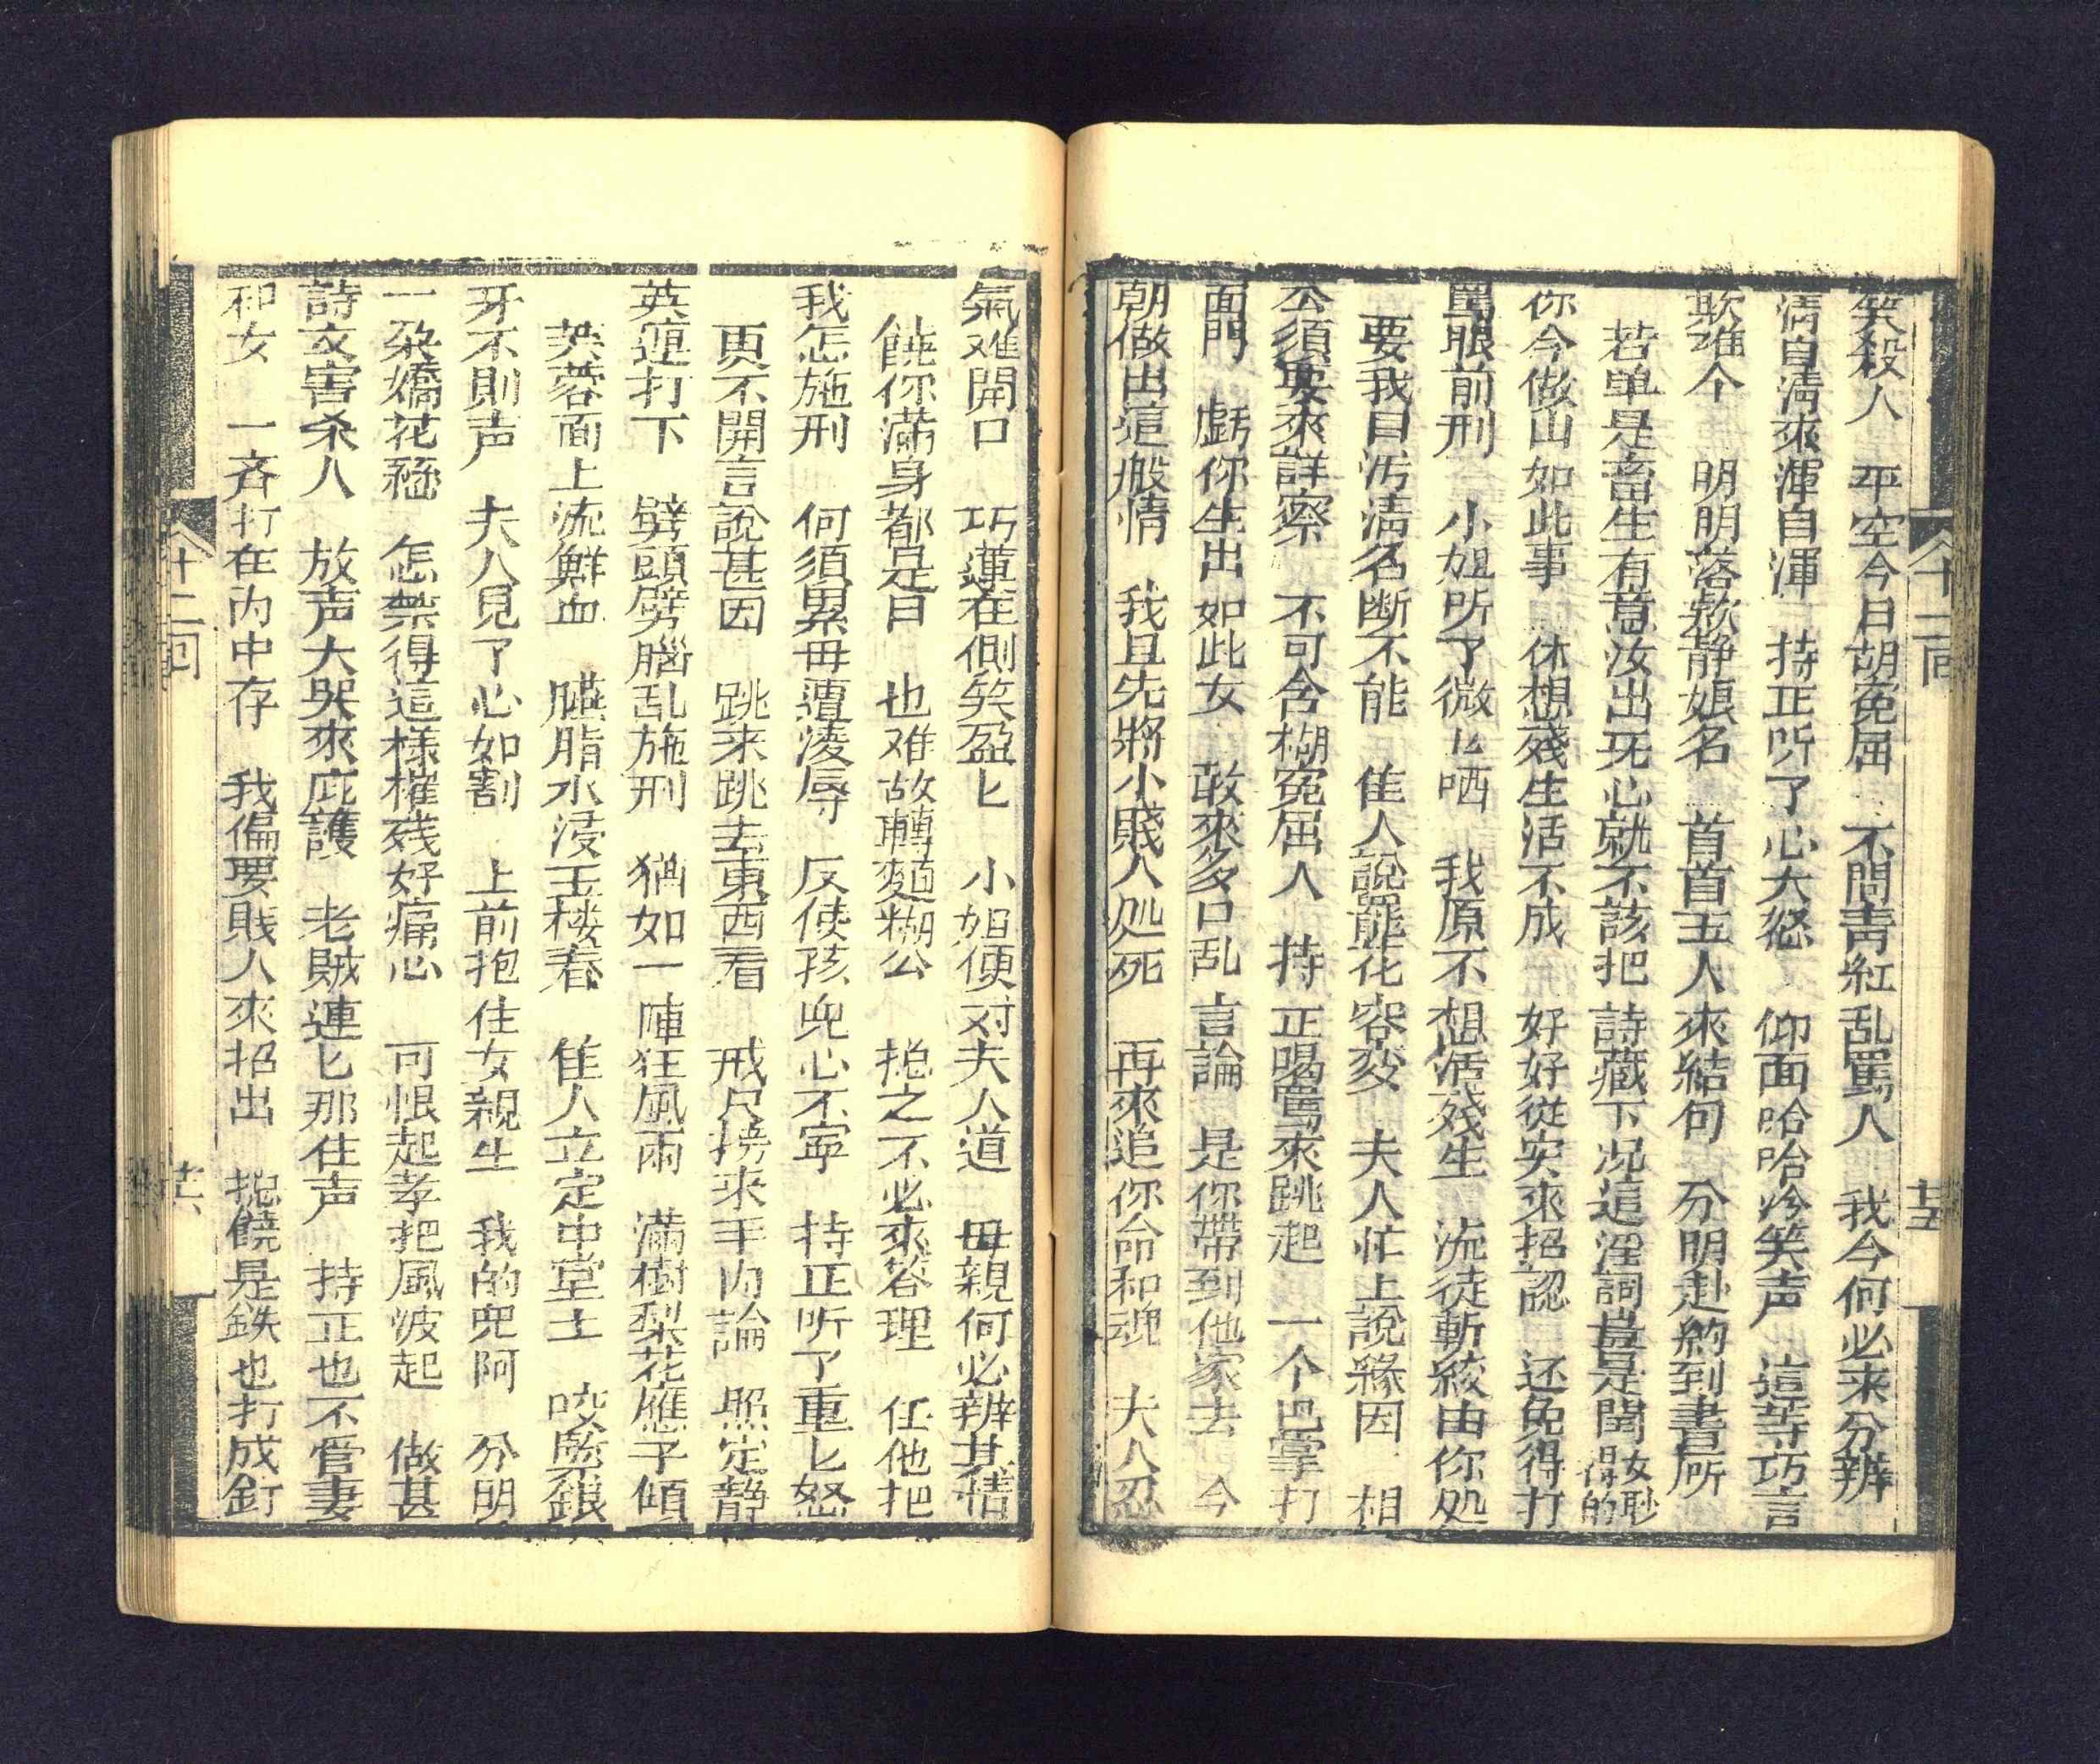 笑殺人　平空今日胡冤屈　不問青紅乱罵人　我今何必来分辨
清自清來渾自渾　持正听了心大怒　仰面哈哈冷笑声　這等巧言
欺誰个　明明落款静娘名　首首玉人來結句　分明赴約到書房
若单是畜生有意汝出死心就不該把詩藏下况這淫詞豈是閨女聆得的
你今做出如此事　休想殘生活不成　好好從实來招認　还免得打
罵眼前刑　小姐听了微匕哂　我原不想活残生　流徒斬絞由你処
要我目污清名断不能　隹人說罷花容変　夫人忙上說緣因　相
公須要來詳察　不可含糊冤屈人　持正喝罵來跳起　一个巴掌打
面門　虧你生出如此女　敢來多口乱言論　是你帶到他家去　今
朝做出這般情　我且先將小賤人処死　再來追你命和魂　夫人忍
十二回
廿五
氣难開口　巧蓮在側笑盈匕　小姐便对夫人道　毋親何必辨其情
饒你滿身都是口　也难故轉麵糊公　挽之不必來答理　任他把
我怎施刑　何須累毋遭凌辱　反使孩兒心不寧　持正听了重匕怒
更不開言說甚因　跳来跳去東西看　戒尺撈來手內論　照定静
英連打下　劈頭劈腦乱施刑　猶如一陣狂風雨　滿樹梨花應手傾
芙蓉面上流鮮血　臙脂水浸玉楼春　隹人立定中堂土　咬緊銀
牙不則声　夫人見了心如割　上前抱住女親生　我的兒阿　分明
一朶嬌花蕋　怎禁得這樣摧残好痛心　可恨起孝把風波起　做甚
詩文害杀人　放声大哭來庇護　老賊連匕那住声　持正也不管妻
和女　一齐打在內中存　我偏要賎人來招出　挽饒是鉄也打成釘
十二回
廿六